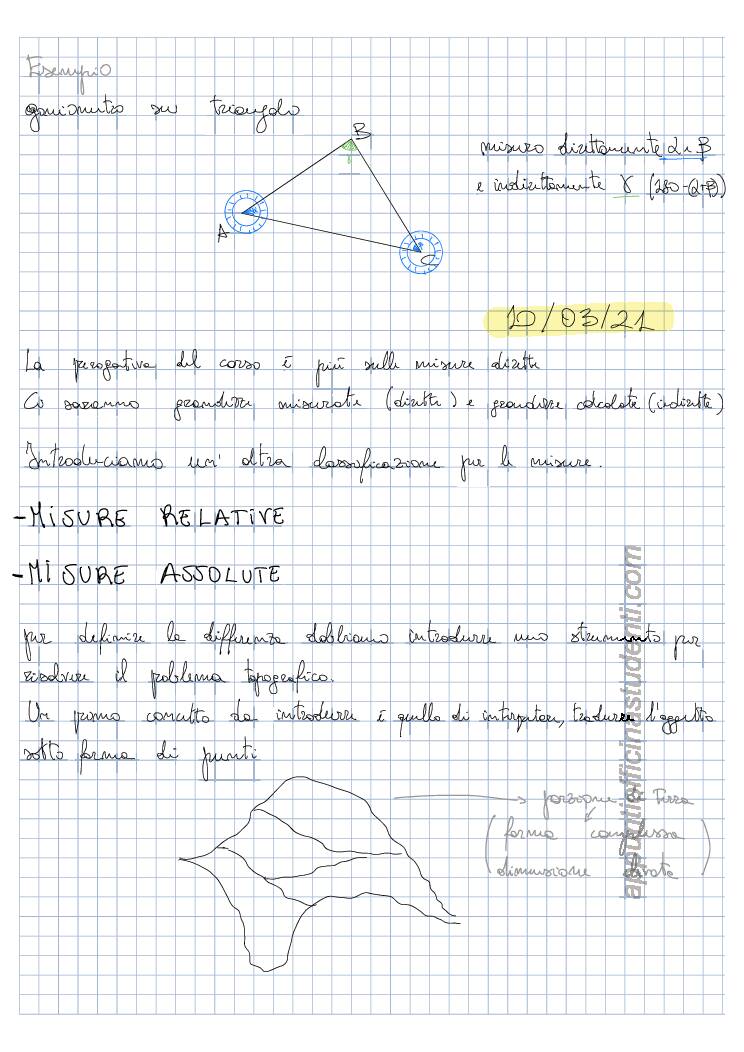 Esempio
goniometro su triangolo
B
misuro direttamente α e β
e indirettamente γ (180-(α+β))
A
C
10/03/21
La perogativa del corso è più sulle misure dirette
Ci saranno grandezze misurate (dirette) e grandezze calcolate (indirette)
Introduciamo un' altra classificazione per le misure.
-MISURE RELATIVE
-MISURE ASSOLUTE
per definire la differenza dobbiamo introdurre uno strumento per
risolvere il problema topografico.
Un primo concetto da introdurre è quello di interpretare, tradurre l'oggetto
sotto forma di punti
porzione di Terra
(forma complessa
dimensione elevata)
appuntiofficinastudenti.com